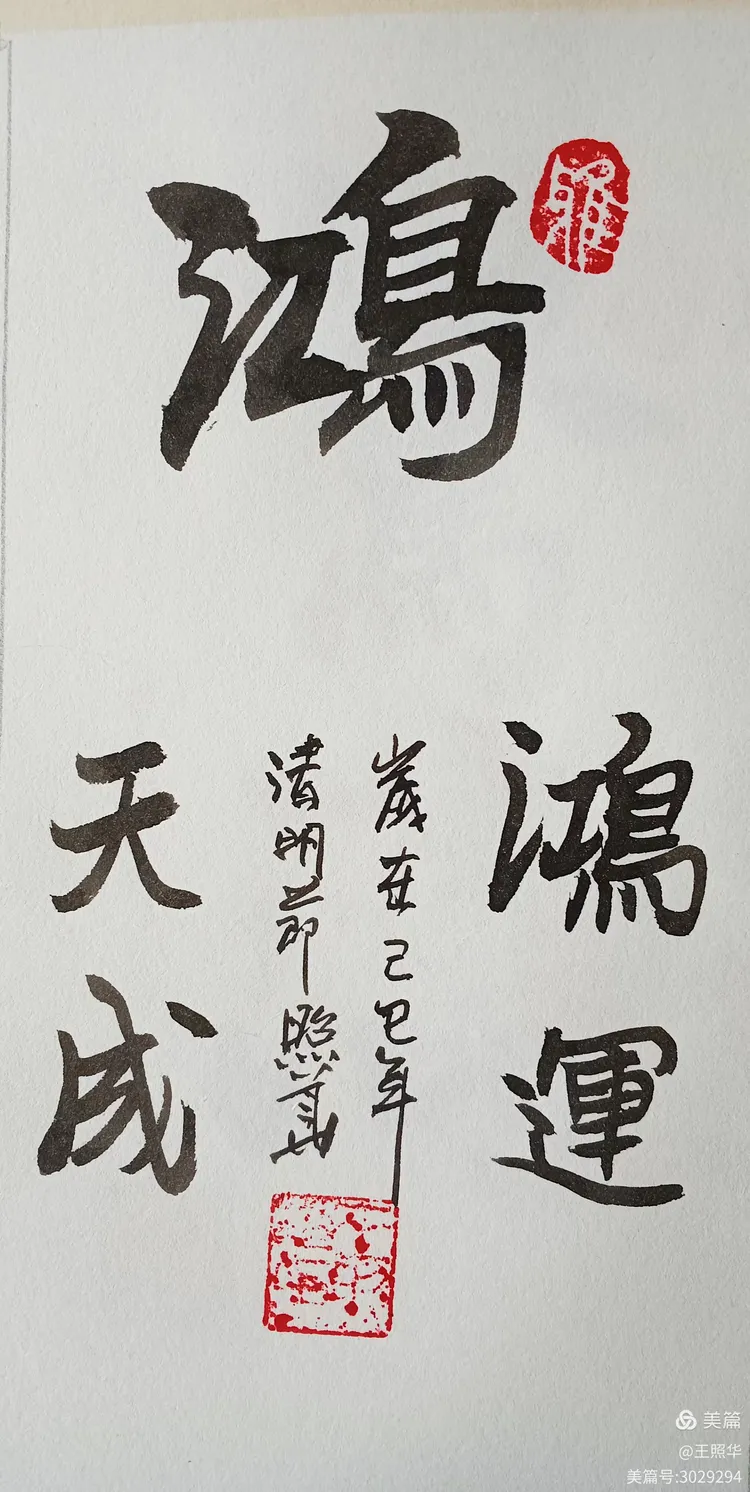 鴻
鴻運
歲在己巳年
清明節照華
天成
美篇
@王照华
美篇号:3029294